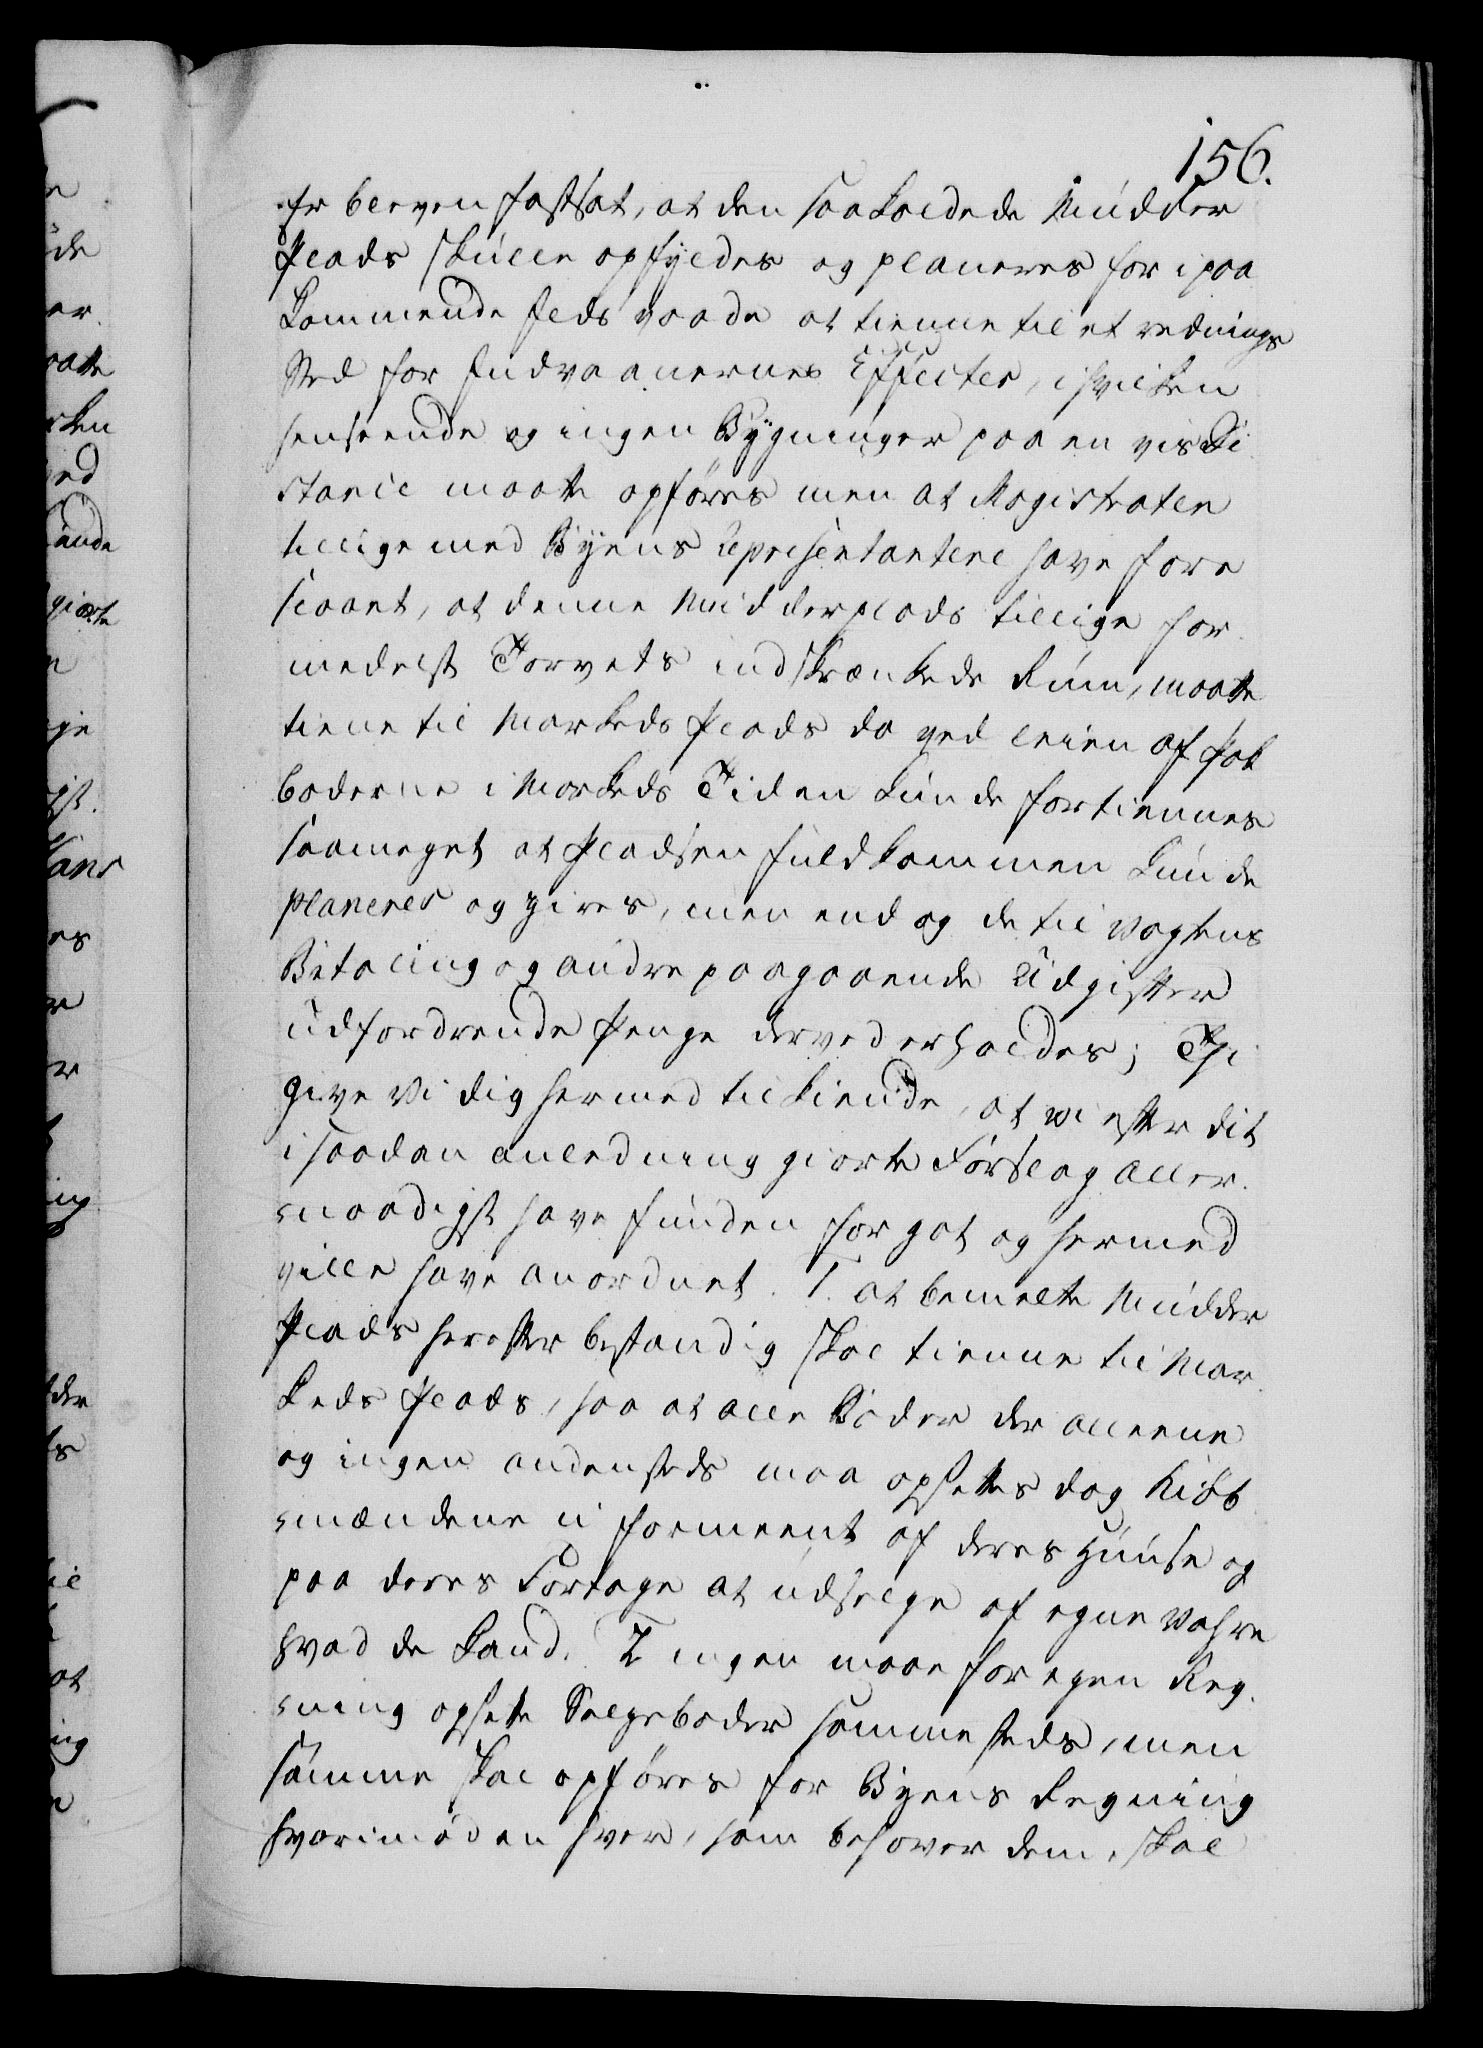 156.
er bleven fastsat, at den saakaldede Mudder
Plads skulle opfyldes og planeres for i paa
kommende Ilds vaade at tienne til et rednings
Sted for Indvaanernes Effecter, i hvilken
henseende og ingen Bygninger paa en vis Di
stance maatte opføres men at Magistraten
tillige med Byens Repræsentantere have fore
slaaet, at denne Mudderplads tillige for
medelst Torvets indskrænkede Rum, maatte
tiene til Markeds Plads da ved leien af Pak
boderne i Markeds Tiden kunde fortiennes
saameget at Pladsen fuldkommen kunde
planeres og gives, men end og de til Vagtens
Betaling og andre paagaaende Udgifter
udfordrende Penge derved erholdes; Thi
give Vi dig hermed tilkiende, at vi efter dit
i saadan anledning giorte Forslag aller
naadigst have funden for got og hermed
ville have anordnet. 1. at bemelte Mudder
Plads herefter bestandig skal tienne til Mar
keds Plads, saa at alle Boder der alleene
og ingen andensteds maa opsettes dog Kiøb
mændene u formeent af deres Huuse og
paa deres Fortoge at udselge af egne Vahre
hvad de kand. 2 ingen maae for egen Reg
ning opsette Salgeboder sammesteds, men
samme skal opføres for Byens Regning
hvorimod en hver, som behøver dem, skal